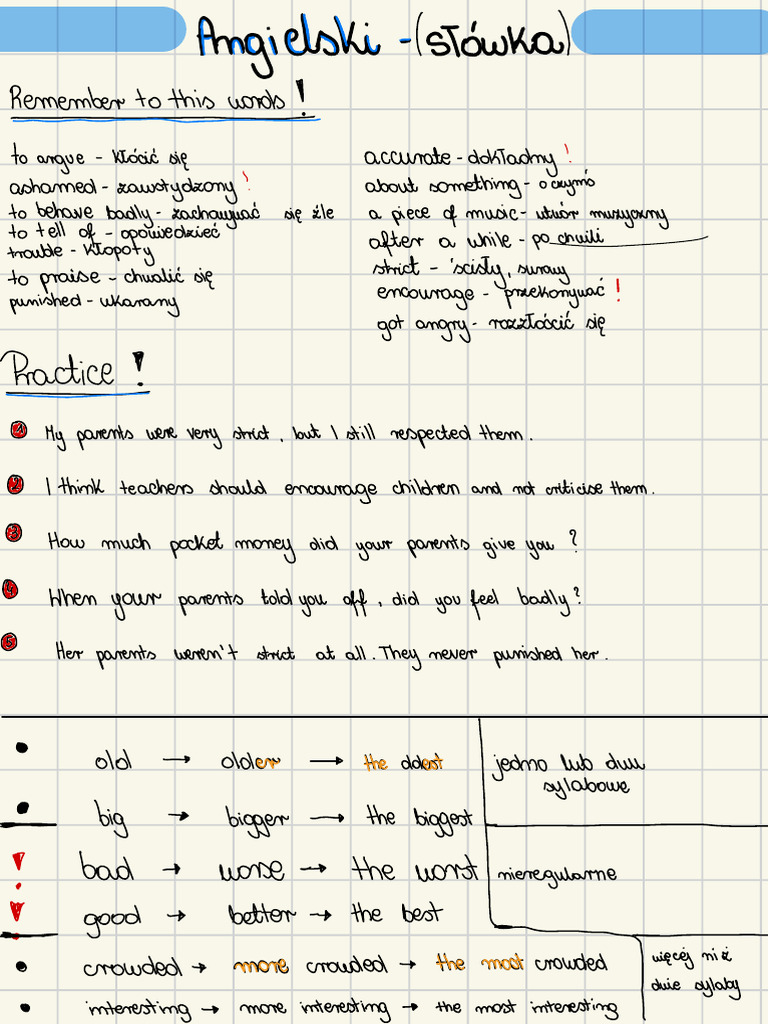 Angielski - (słówka)
Remember to this words!
to argue - kłócić się
ashamed - zawstydzony !
to behave badly - zachowywać się źle
to tell of - opowiedzieć
trouble - kłopoty
to praise - chwalić się
punished - ukarany
accurate - dokładny !
about something - o czymś
a piece of music - utwór muzyczny
after a while - po chwili
strict - ścisły, surowy
encourage - przekonywać !
got angry - rozzłościć się
Practice !
1 My parents were very strict, but I still respected them.
2 I think teachers should encourage children and not criticise them.
3 How much pocket money did your parents give you ?
4 When your parents told you off, did you feel badly?
5 Her parents weren't strict at all. They never punished her.
• old → older → the oldest
jedno lub dwu
sylabowe
• big → bigger → the biggest
! bad → worse → the worst
nieregularne
! good → better → the best
• crowded → more crowded → the most crowded
więcej niż
dwie sylaby
• interesting → more interesting → the most interesting